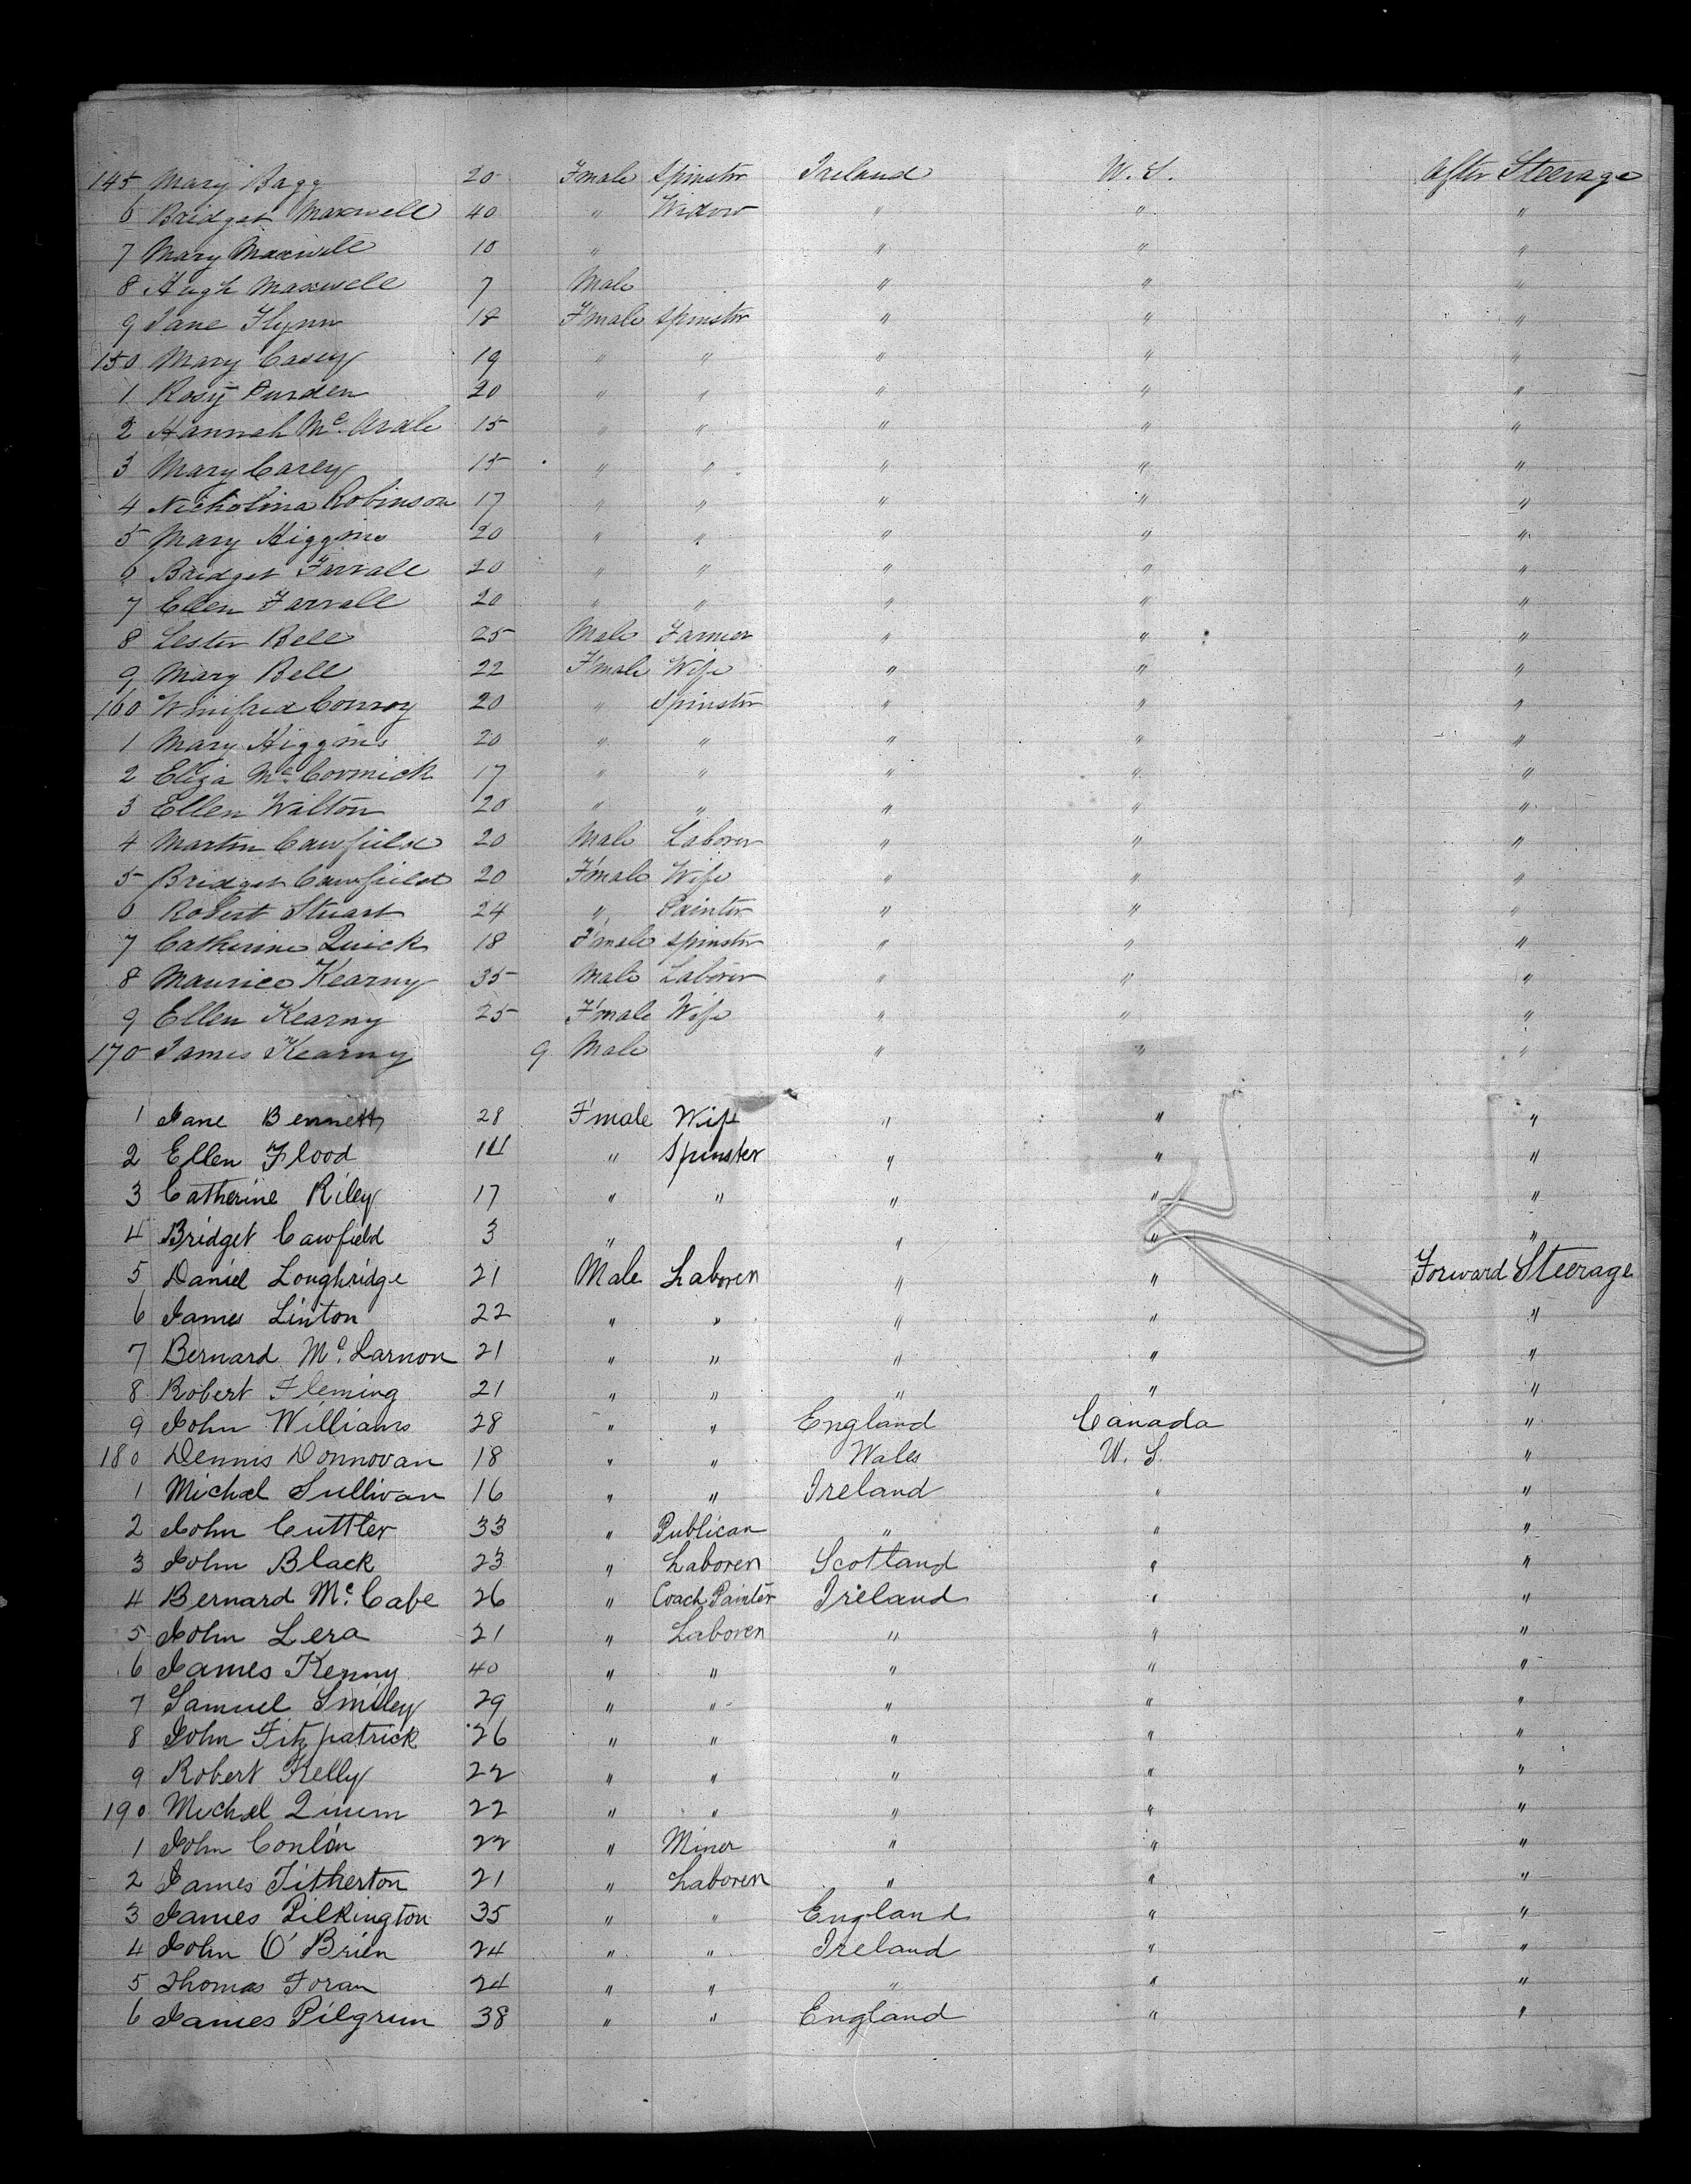 145 Mary Bagg 20 Fmale Spinster Ireland U.S. After Steerage
6 Bridget Maxwell 40 " Widow " " "
7 Mary Maxwell 10 " " " "
8 Hugh Maxwell 7 Male " " "
9 Jane Flynn 18 Fmale Spinster " " "
150 Mary Casey 19 " " " " "
1 Rosy Purden 20 " " " " "
2 Hannah Mc. 15 " " " " "
3 Mary Carey 15 " " " " "
4 Nicholina Robinson 17 " " " " "
5 Mary Higgins 20 " " " " "
6 Bridget Farrall 20 " " " " "
7 Ellen Farrall 20 " " " " "
8 Lester Bell 25 Male Farmer " " "
9 Mary Bell 22 Fmale Wife " " "
160 Winifred Conroy 20 " Spinster " " "
1 Mary Higgins 20 " " " " "
2 Eliza Mc. Cormick 17 " " " " "
3 Ellen Walton 20 " " " " "
4 Martin Cawfield 20 Male Laborer " " "
5 Bridget Cawfield 20 Fmale Wife " " "
6 Robert Stuart 24 " Painter " " "
7 Catherine Quick 18 Fmale Spinster " " "
8 Maurice Kearny 35 Male Laborer " " "
9 Ellen Kearny 25 Fmale Wife " " "
170 James Kearny 9 Male " " "
1 Jane Bennett 28 Fmale Wife " " "
2 Ellen Flood 14 " Spinster " " "
3 Catherine Riley 17 " " " " "
4 Bridget Cawfield 3 " " " "
5 Daniel Loughridge 21 Male Laborer " " Forward Steerage
6 James Linton 22 " " " " "
7 Bernard Mc. Larnon 21 " " " " "
8 Robert Fleming 21 " " " " "
9 John Williams 28 " " England Canada "
180 Dennis Donnovan 18 " " Wales U.S. "
1 Michael Sullivan 16 " " Ireland " "
2 John Cuttler 33 " Publican " " "
3 John Black 23 " Laborer Scotland " "
4 Bernard Mc. Cabe 26 " Coach Painter Ireland " "
5 John Lera 21 " Laborer " " "
6 James Kenny 40 " " " " "
7 Samuel Smiley 29 " " " " "
8 John Fitzpatrick 26 " " " " "
9 Robert Kelly 22 " " " " "
190 Michael Quinn 22 " " " " "
1 John Conlin 22 " Miner " " "
2 James Titherton 21 " Laborer " " "
3 James Pilkington 35 " " England " "
4 John O'Brien 24 " " Ireland " "
5 Thomas Foran 24 " " " " "
6 James Pilgrim 38 " " England " "